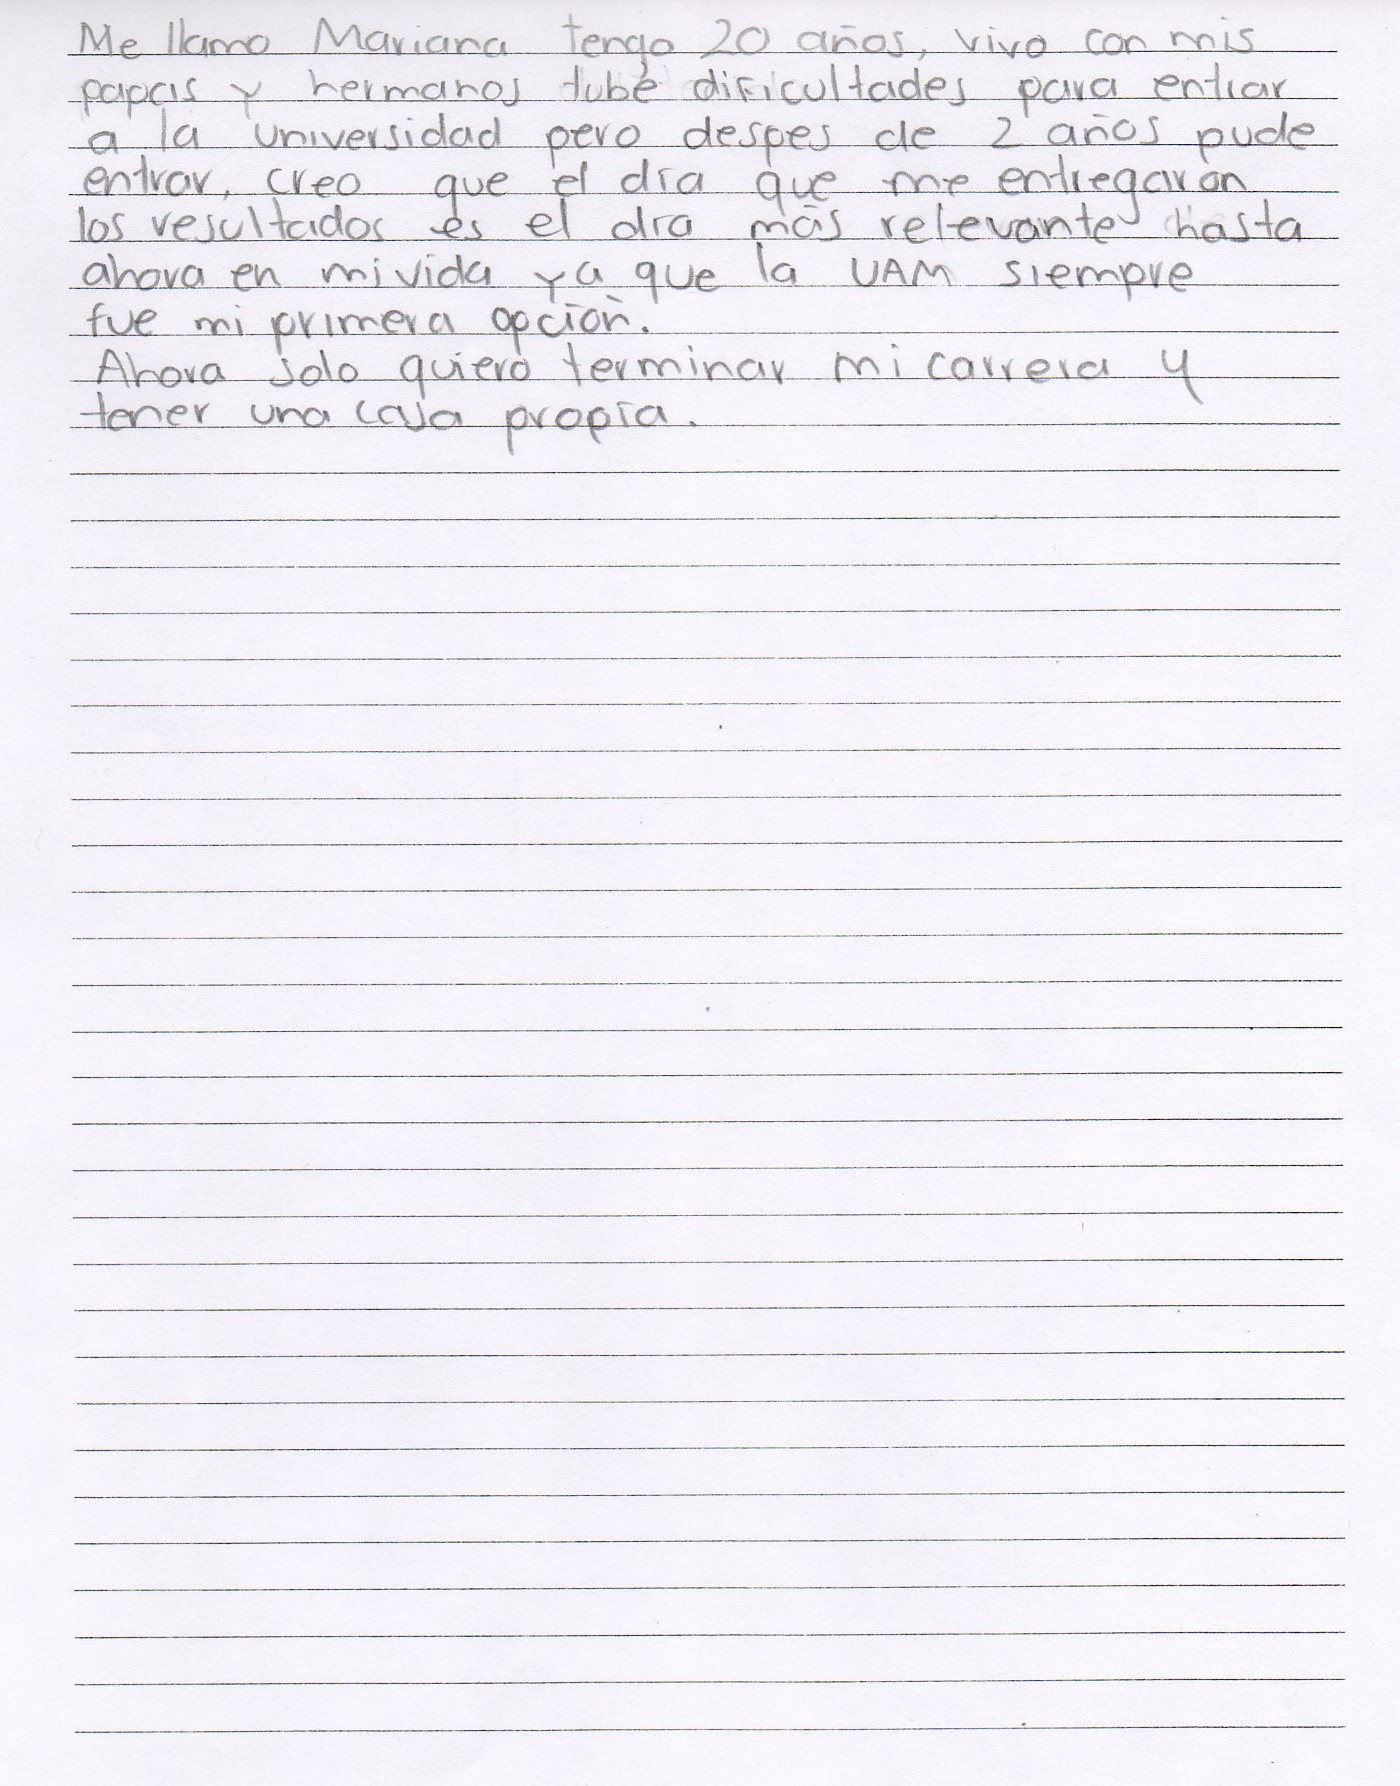 Me llamo Mariana tengo 20 años, vivo con mis
papas y hermanos tube dificultades para entrar
a la universidad pero despes de 2 años pude
entrar, creo que el día que me entregaron
los resultados es el día más relevante hasta
ahora en mi vida ya que la UAM siempre
fue mi primera opción.
Ahora solo quiero terminar mi carrera y
tener una casa propia.